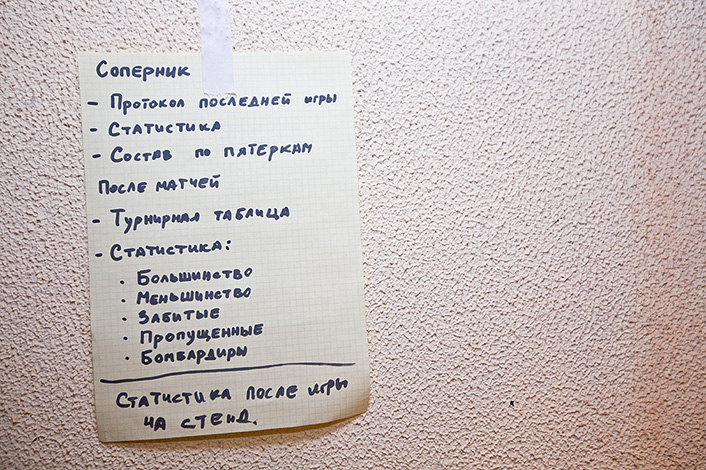 Соперник
- Протокол последней игры
- Статистика
- Состав по пятеркам
После матчей
- Турнирная таблица
- Статистика:
• Большинство
• Меньшинство
• Забитые
• Пропущенные
• Бомбардиры
Статистика после игры
на стенд.